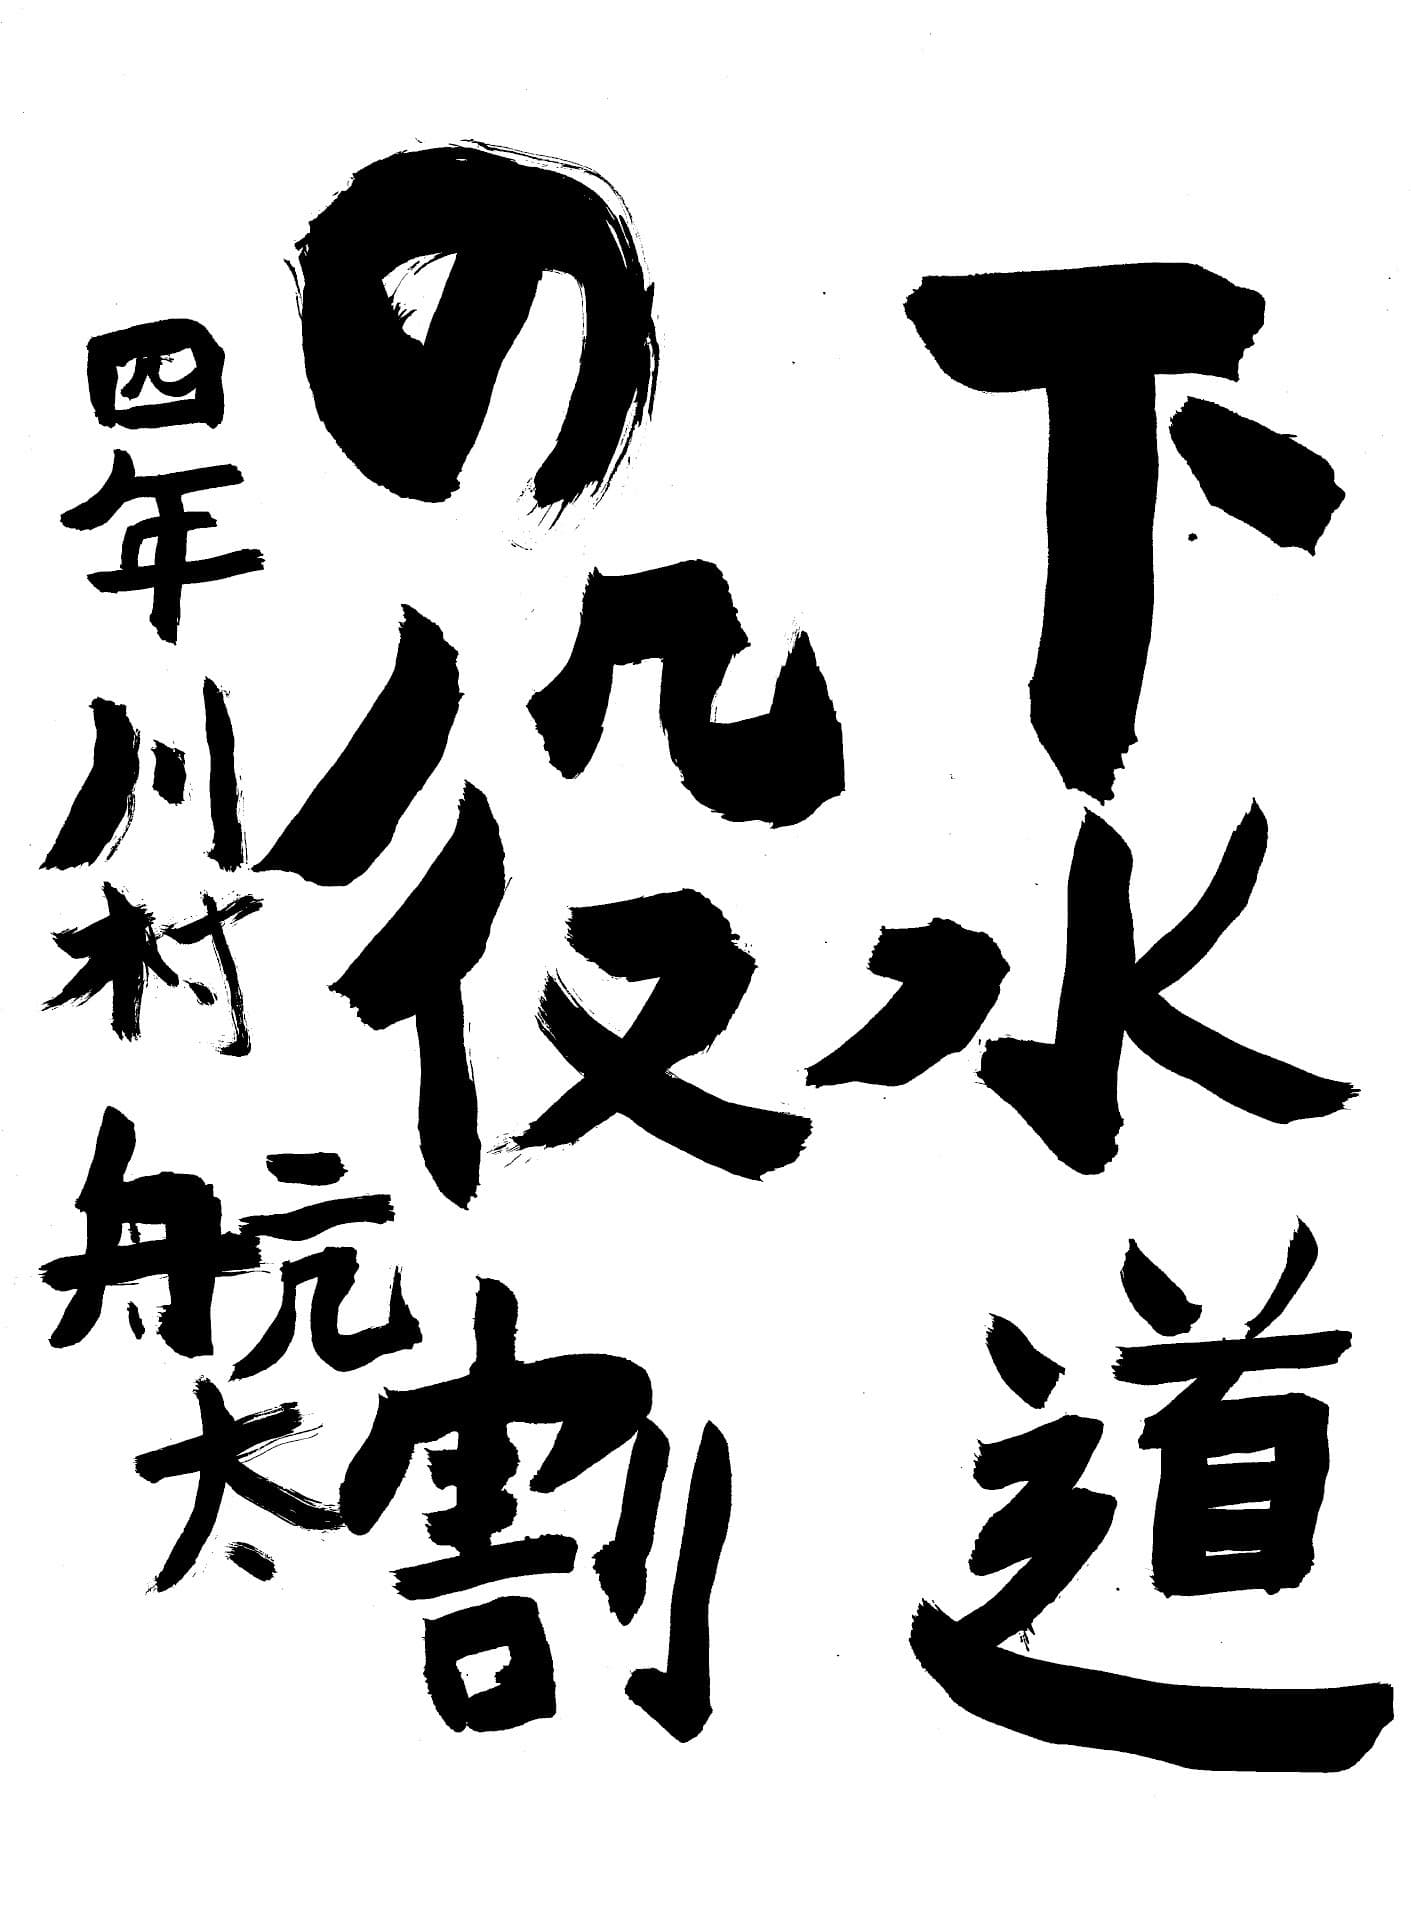 下水道
の役割
四年 川村 航太